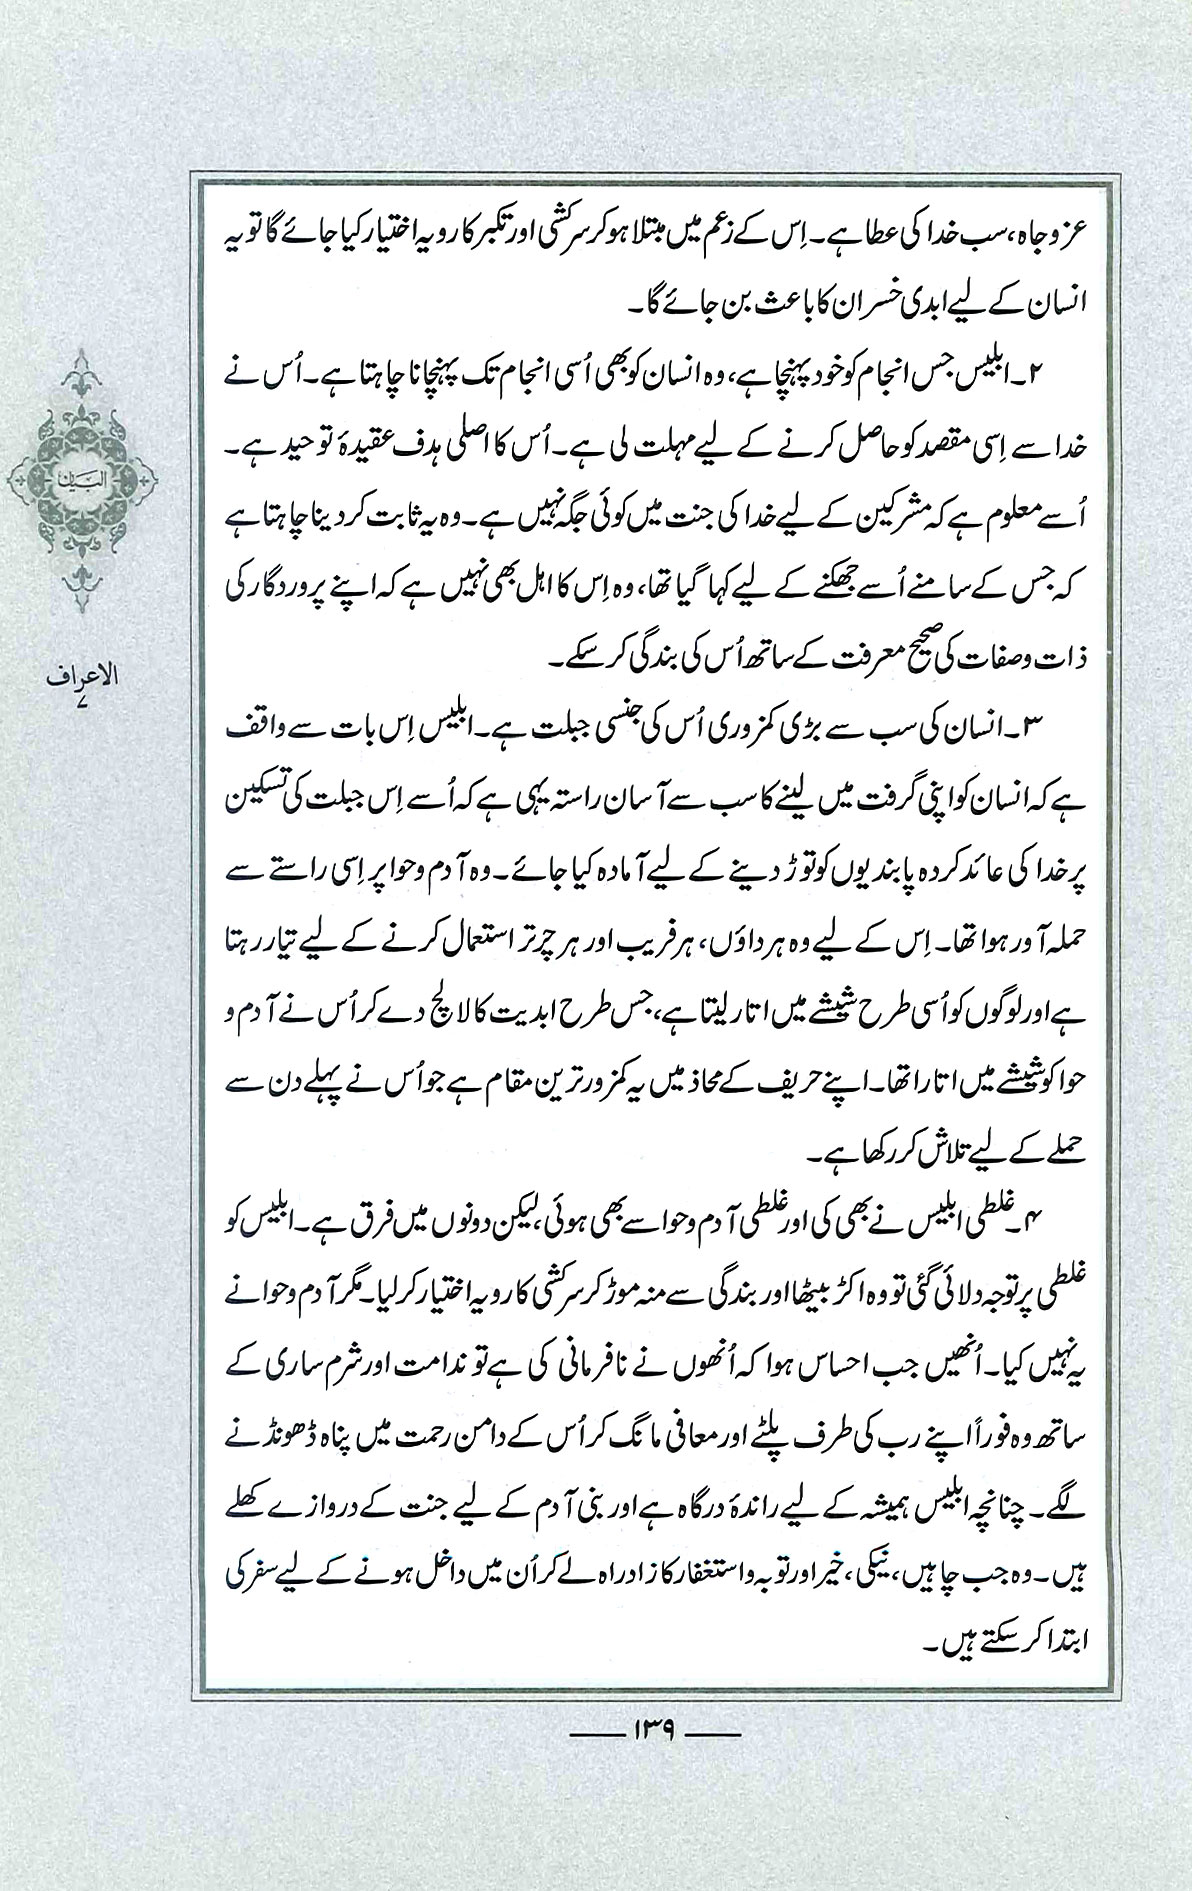 عز و جاہ، سب خدا کی عطا ہے۔ اِس کے زعم میں مبتلا ہو کر سرکشی اور تکبر کا رویہ اختیار کیا جائے گا تو یہ
انسان کے لیے ابدی خسران کا باعث بن جائے گا۔
۲۔ ابلیس جس انجام کو خود پہنچا ہے، وہ انسان کو بھی اُسی انجام تک پہنچانا چاہتا ہے۔ اُس نے
خدا سے اِسی مقصد کو حاصل کرنے کے لیے مہلت لی ہے۔ اُس کا اصلی ہدف عقیدۂ توحید ہے۔
اُسے معلوم ہے کہ مشرکین کے لیے خدا کی جنت میں کوئی جگہ نہیں ہے۔ وہ یہ ثابت کر دینا چاہتا ہے
کہ جس کے سامنے اُسے جھکنے کے لیے کہا گیا تھا، وہ اِس کا اہل بھی نہیں ہے کہ اپنے پروردگار کی
ذات و صفات کی صحیح معرفت کے ساتھ اُس کی بندگی کر سکے۔
۳۔ انسان کی سب سے بڑی کمزوری اُس کی جنسی جبلت ہے۔ ابلیس اِس بات سے واقف
ہے کہ انسان کو اپنی گرفت میں لینے کا سب سے آسان راستہ یہی ہے کہ اُسے اِس جبلت کی تسکین
پر خدا کی عائد کردہ پابندیوں کو توڑ دینے کے لیے آمادہ کیا جائے۔ وہ آدم و حوا پر اِسی راستے سے
حملہ آور ہوا تھا۔ اِس کے لیے وہ ہر داؤں، ہر فریب اور ہر چرتر استعمال کرنے کے لیے تیار رہتا
ہے اور لوگوں کو اُسی طرح شیشے میں اتار لیتا ہے، جس طرح ابدیت کا لالچ دے کر اُس نے آدم و
حوا کو شیشے میں اتارا تھا۔ اپنے حریف کے محاذ میں یہ کمزور ترین مقام ہے جو اُس نے پہلے دن سے
حملے کے لیے تلاش کر رکھا ہے۔
۴۔ غلطی ابلیس نے بھی کی اور غلطی آدم و حوا سے بھی ہوئی، لیکن دونوں میں فرق ہے۔ ابلیس کو
غلطی پر توجہ دلائی گئی تو وہ اکڑ بیٹھا اور بندگی سے منہ موڑ کر سرکشی کا رویہ اختیار کر لیا۔ مگر آدم و حوا نے
یہ نہیں کیا۔ اُنھیں جب احساس ہوا کہ اُنھوں نے نافرمانی کی ہے تو ندامت اور شرم ساری کے
ساتھ وہ فوراً اپنے رب کی طرف پلٹے اور معافی مانگ کر اُس کے دامن رحمت میں پناہ ڈھونڈنے
لگے۔ چنانچہ ابلیس ہمیشہ کے لیے راندۂ درگاہ ہے اور بنی آدم کے لیے جنت کے دروازے کھلے
ہیں۔ وہ جب چاہیں، نیکی، خیر اور توبہ و استغفار کا زاد راہ لے کر اُن میں داخل ہونے کے لیے سفر کی
ابتدا کر سکتے ہیں۔
البیان
الاعراف
۷
۱۳۹